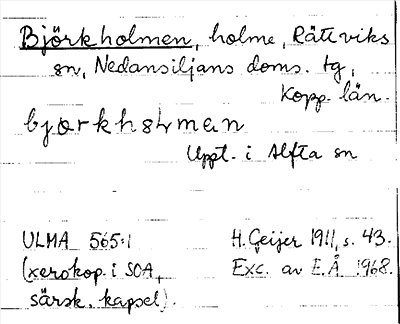 Björkholmen, holme, Rättviks
sn, Nedansiljans doms. tg,
Kopp. län.
bjørkhɔLmen
Uppt. i Alfta sn
ULMA 565:1 H. Geijer 1911, s. 43.
(xerokop. i SOA, Exc. av E.Å 1968.
särsk. kapsel).